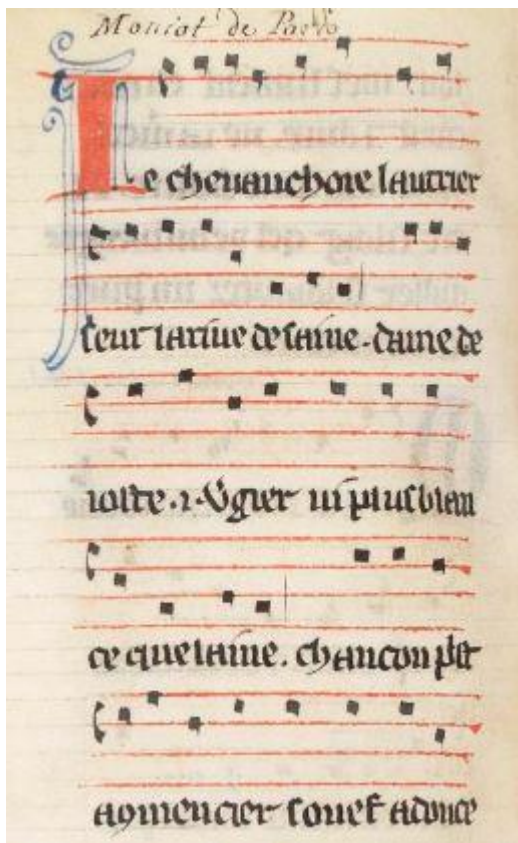 Moniot de Paris
Ie cheuauchoie lautrier
seur la riue de saine . dame de
ioste .i. Vgier ui plus blan
ce que laine . chancon plet
a 9mencier souef a douce